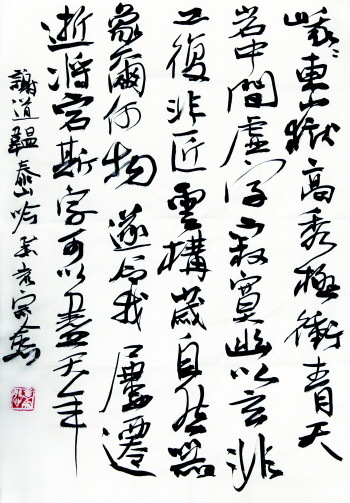 峨〻東嶽高秀極衝青天
岩中間虛宇寂寞幽以玄非
工復非匠雲構嵗自然器
象爾何物遂令我屢遷
逝將宅斯宇可以盡天年
謝道韞泰山吟